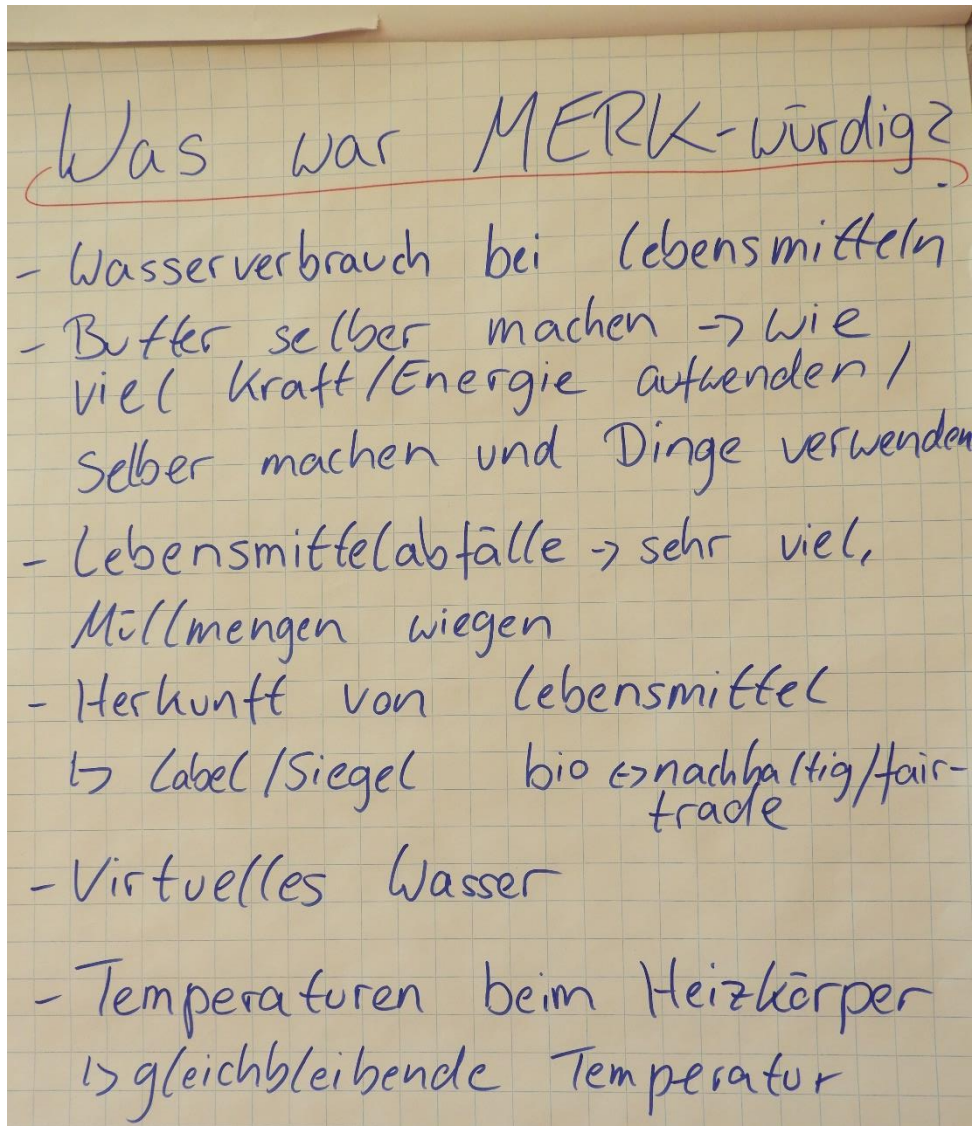 Was war MERK-würdig?
- Wasserverbrauch bei Lebensmitteln
- Butter selber machen -> wie
viel Kraft/Energie aufwenden/
Selber machen und Dinge verwenden
- Lebensmittelabfälle -> sehr viel,
Müllmengen wiegen
- Herkunft von Lebensmittel
↳ Label/Siegel bio <-> nachhaltig/fair-
trade
- Virtuelles Wasser
- Temperaturen beim Heizkörper
↳ gleichbleibende Temperatur